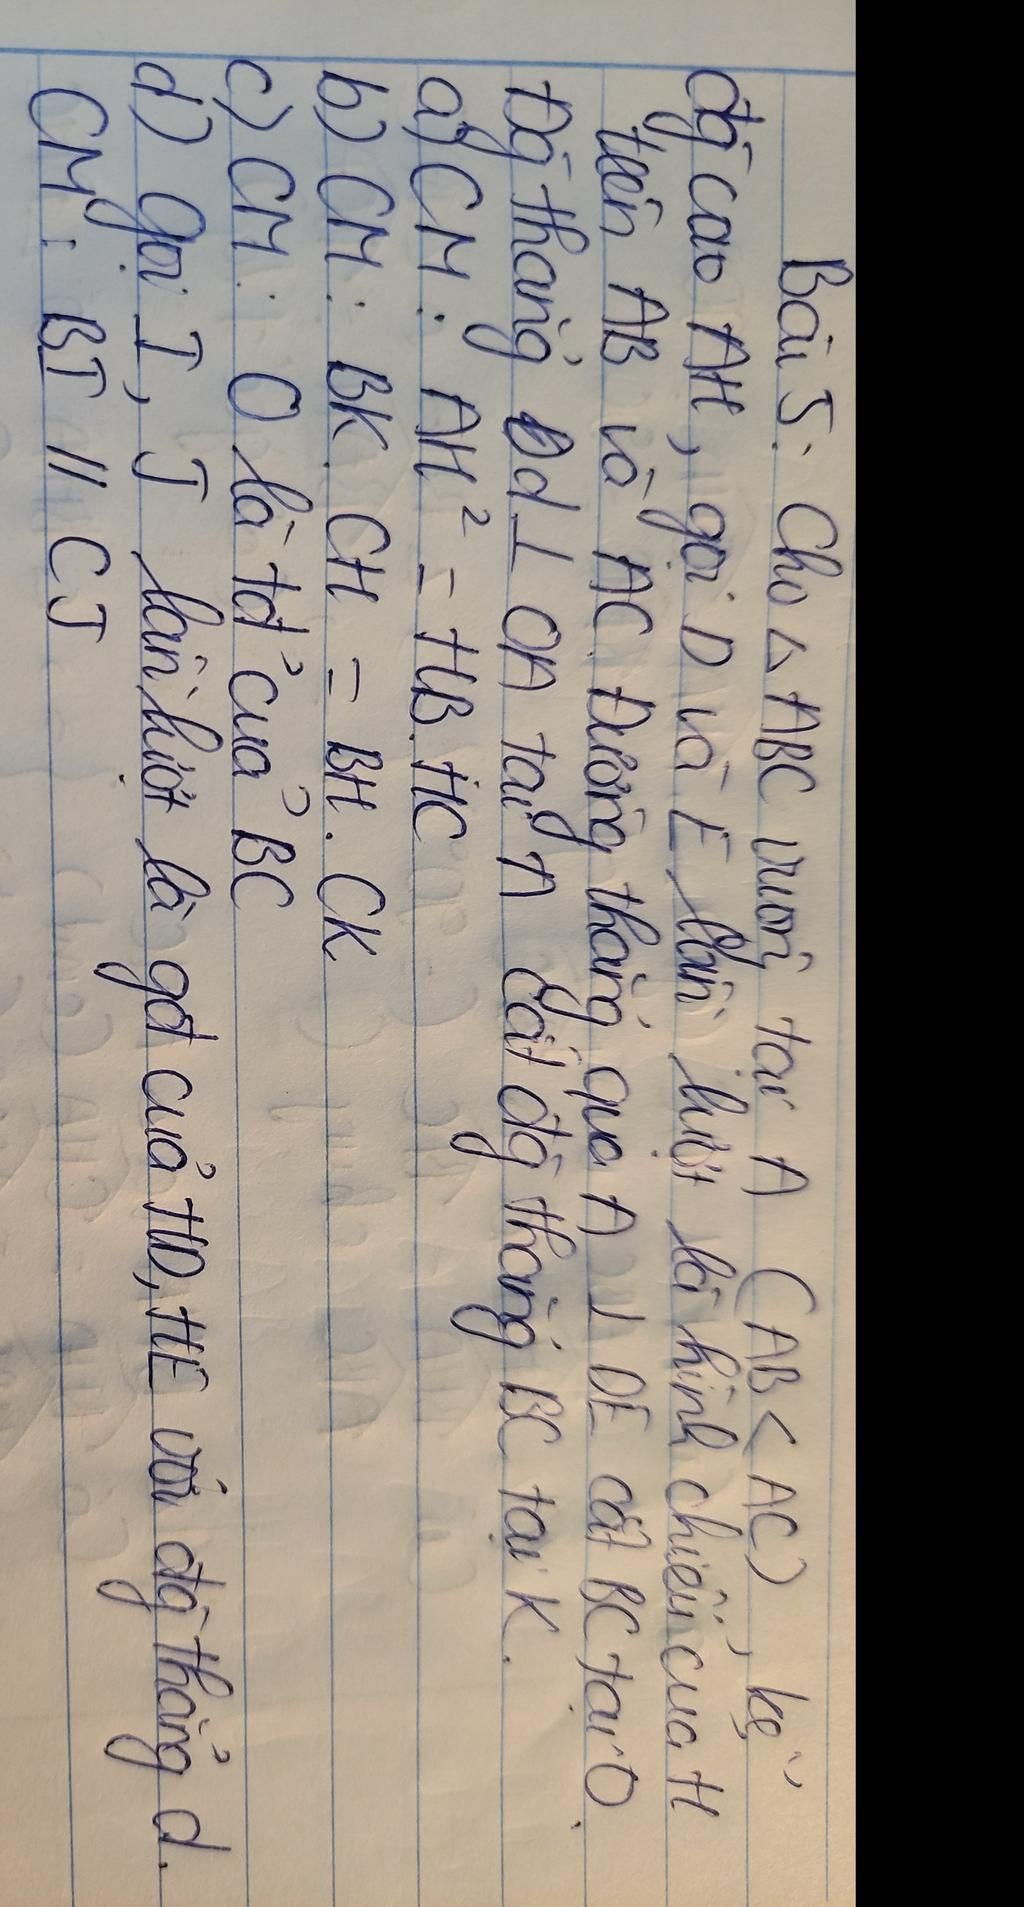 Bài 5: Cho △ ABC vuông tại A (AB < AC), kẻ
đg cao AH, gọi D và E lần lượt là hình chiếu của H
trên AB và AC. Đường thẳng qua A ⊥ DE cắt BC tại O.
Đg thẳng d ⊥ OA tại A cắt đg thẳng BC tại K.
a) CM: AH² = HB.HC
b) CM: BK.CH = BH.CK
c) CM: O là tđ của BC
d) Gọi I, J lần lượt là gđ của HD, HE với đg thẳng d.
CM: BI // CJ